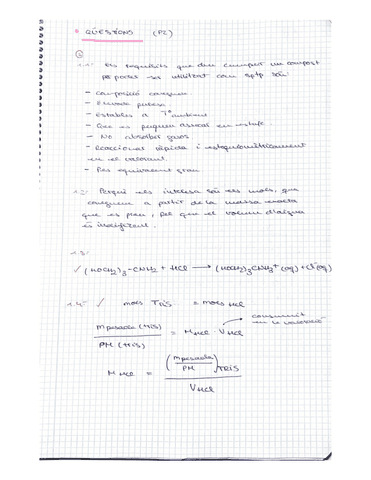 * QÜESTIONS (P2)
1.1- Els requisits que deu cumplir un compost
per poder ser utilitzat com sptp són:
- Composició coneguda.
- Elevada puresa
- Estables a Tª ambient
- Que es puguen assecar en estufa.
- No absorbir gasos.
- Reaccionar ràpida i estequiomètricament
en el valorant.
- Pes equivalent gran
1.2- Perquè els interesa són els mols, que
coneguem a partir de la massa exacta
que es pesa, pel que el volum d'aigua
és insignificant.
1.3-
✓ (HOCH2)3-CNH2 + HCl → (HOCH2)3CNH3+ (aq) + Cl-(aq)
1.4- ✓ mols TRIS = mols HCl
m pesada (tris) / PM (tris) = M HCl · V HCl → consumit en la valoració
M HCl = (m pesada / PM) TRIS / V HCl